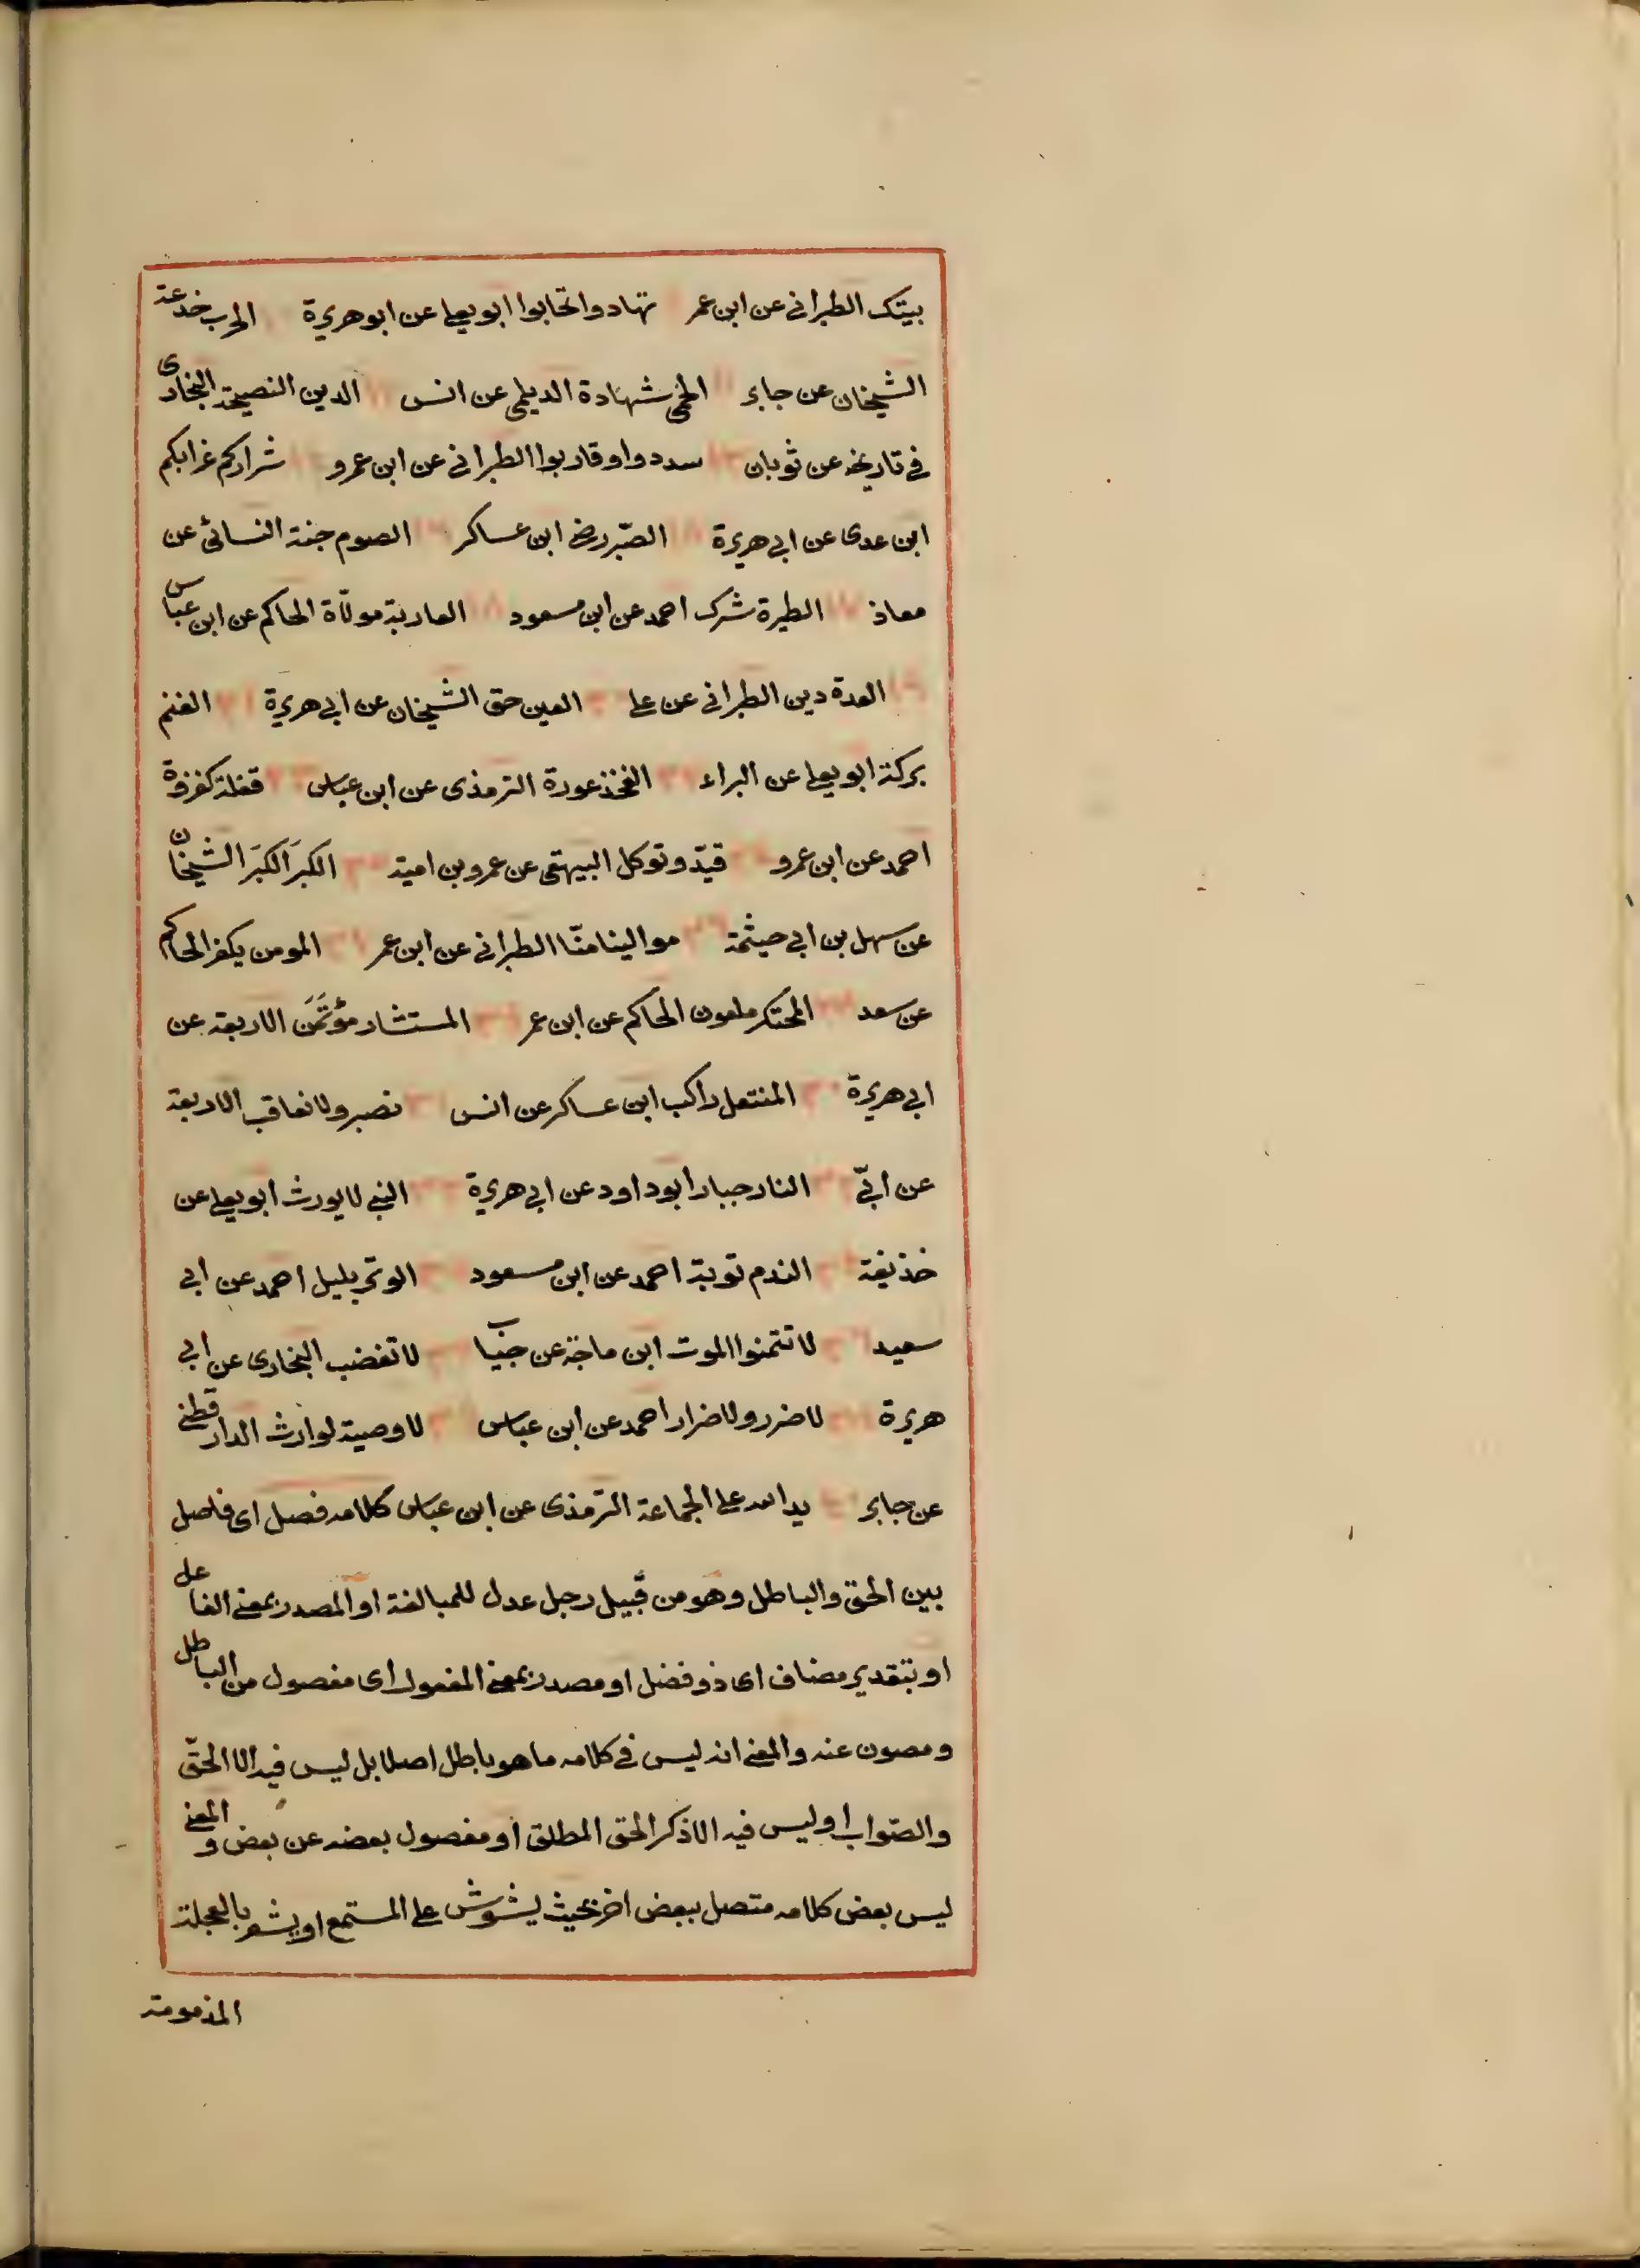 بيتك الطبرانى عن ابن عمر تهادوا تحابوا ابو يعلى عن ابو هريرة الحرب خدعة
الشيخان عن جابر ١١ الحمى شهادة الديلمى عن انس ١٢ الدين النصيحة البخارى
فى تاريخه عن ثوبان ١٣ سددوا وقاربوا الطبرانى عن ابن عمرو ١٤ شراركم عزابكم
ابن عدى عن ابى هريرة ١٥ الصبر رضى ابن عساكر ١٦ الصوم جنة النسائى عن
معاذ ١٧ الطيرة شرك احمد عن ابن مسعود ١٨ العارية مودّاة الحاكم عن ابن عباس
١٩ العدة دين الطبرانى عن على ٢٠ العين حق الشيخان عن ابى هريرة ٢١ الغنم
بركة ابو يعلى عن البراء ٢٢ الفخذ عورة الترمذى عن ابن عباس ٢٣ قفلة كغزوة
احمد عن ابن عمرو ٢٤ قيّد وتوكل البيهقى عن عمرو بن امية ٢٥ الكبَر الكبَر الشيخان
عن سهل بن ابى حيثمة ٢٦ موالينا منّا الطبرانى عن ابن عمر ٢٧ المومن يكفر الحاكم
عن سعد ٢٨ المحتكر ملعون الحاكم عن ابن عمر ٢٩ المستشار مؤتَمَن الاربعة عن
ابى هريرة ٣٠ المنتعل راكب ابن عساكر عن انس ٣١ نصبر ولا نعاقب الاربعة
عن ابىّ ٣٢ النار جبار ابو داود عن ابى هريرة ٣٣ النبى لا يورث ابو يعلى عن
حذيفة ٣٤ الندم توبة احمد عن ابن مسعود ٣٥ الوتر بليل احمد عن ابى
سعيد ٣٦ لا تتمنوا الموت ابن ماجة عن ٣٧ لا تغضب البخارى عن ابى
هريرة ٣٨ لا ضرر ولا ضرار احمد عن ابن عباس ٣٩ لا وصية لوارث الدارقطنى
عن جابر ٤٠ يد الله على الجماعة الترمذى عن ابن عباس كلامه فصل اى فاصل
بين الحق والباطل وهو من قبيل رجل عدل للمبالغة او المصدر بمعنى الفاعل
او بتقدير مضاف اى ذو فضل او مصدر بمعنى المفعول اى مفصول من الباطل
ومصون عنه والمعنى انه ليس فى كلامه ما هو باطل اصلا بل ليس فيه الا الحقّ
والصّواب او ليس فيه الا ذكر الحق المطلق او مفصول بعضه عن بعض والمعنى
ليس بعض كلامه متصل ببعض اخر بحيث يشوّش على المستمع او يشعر بالعجلة
المذمومة